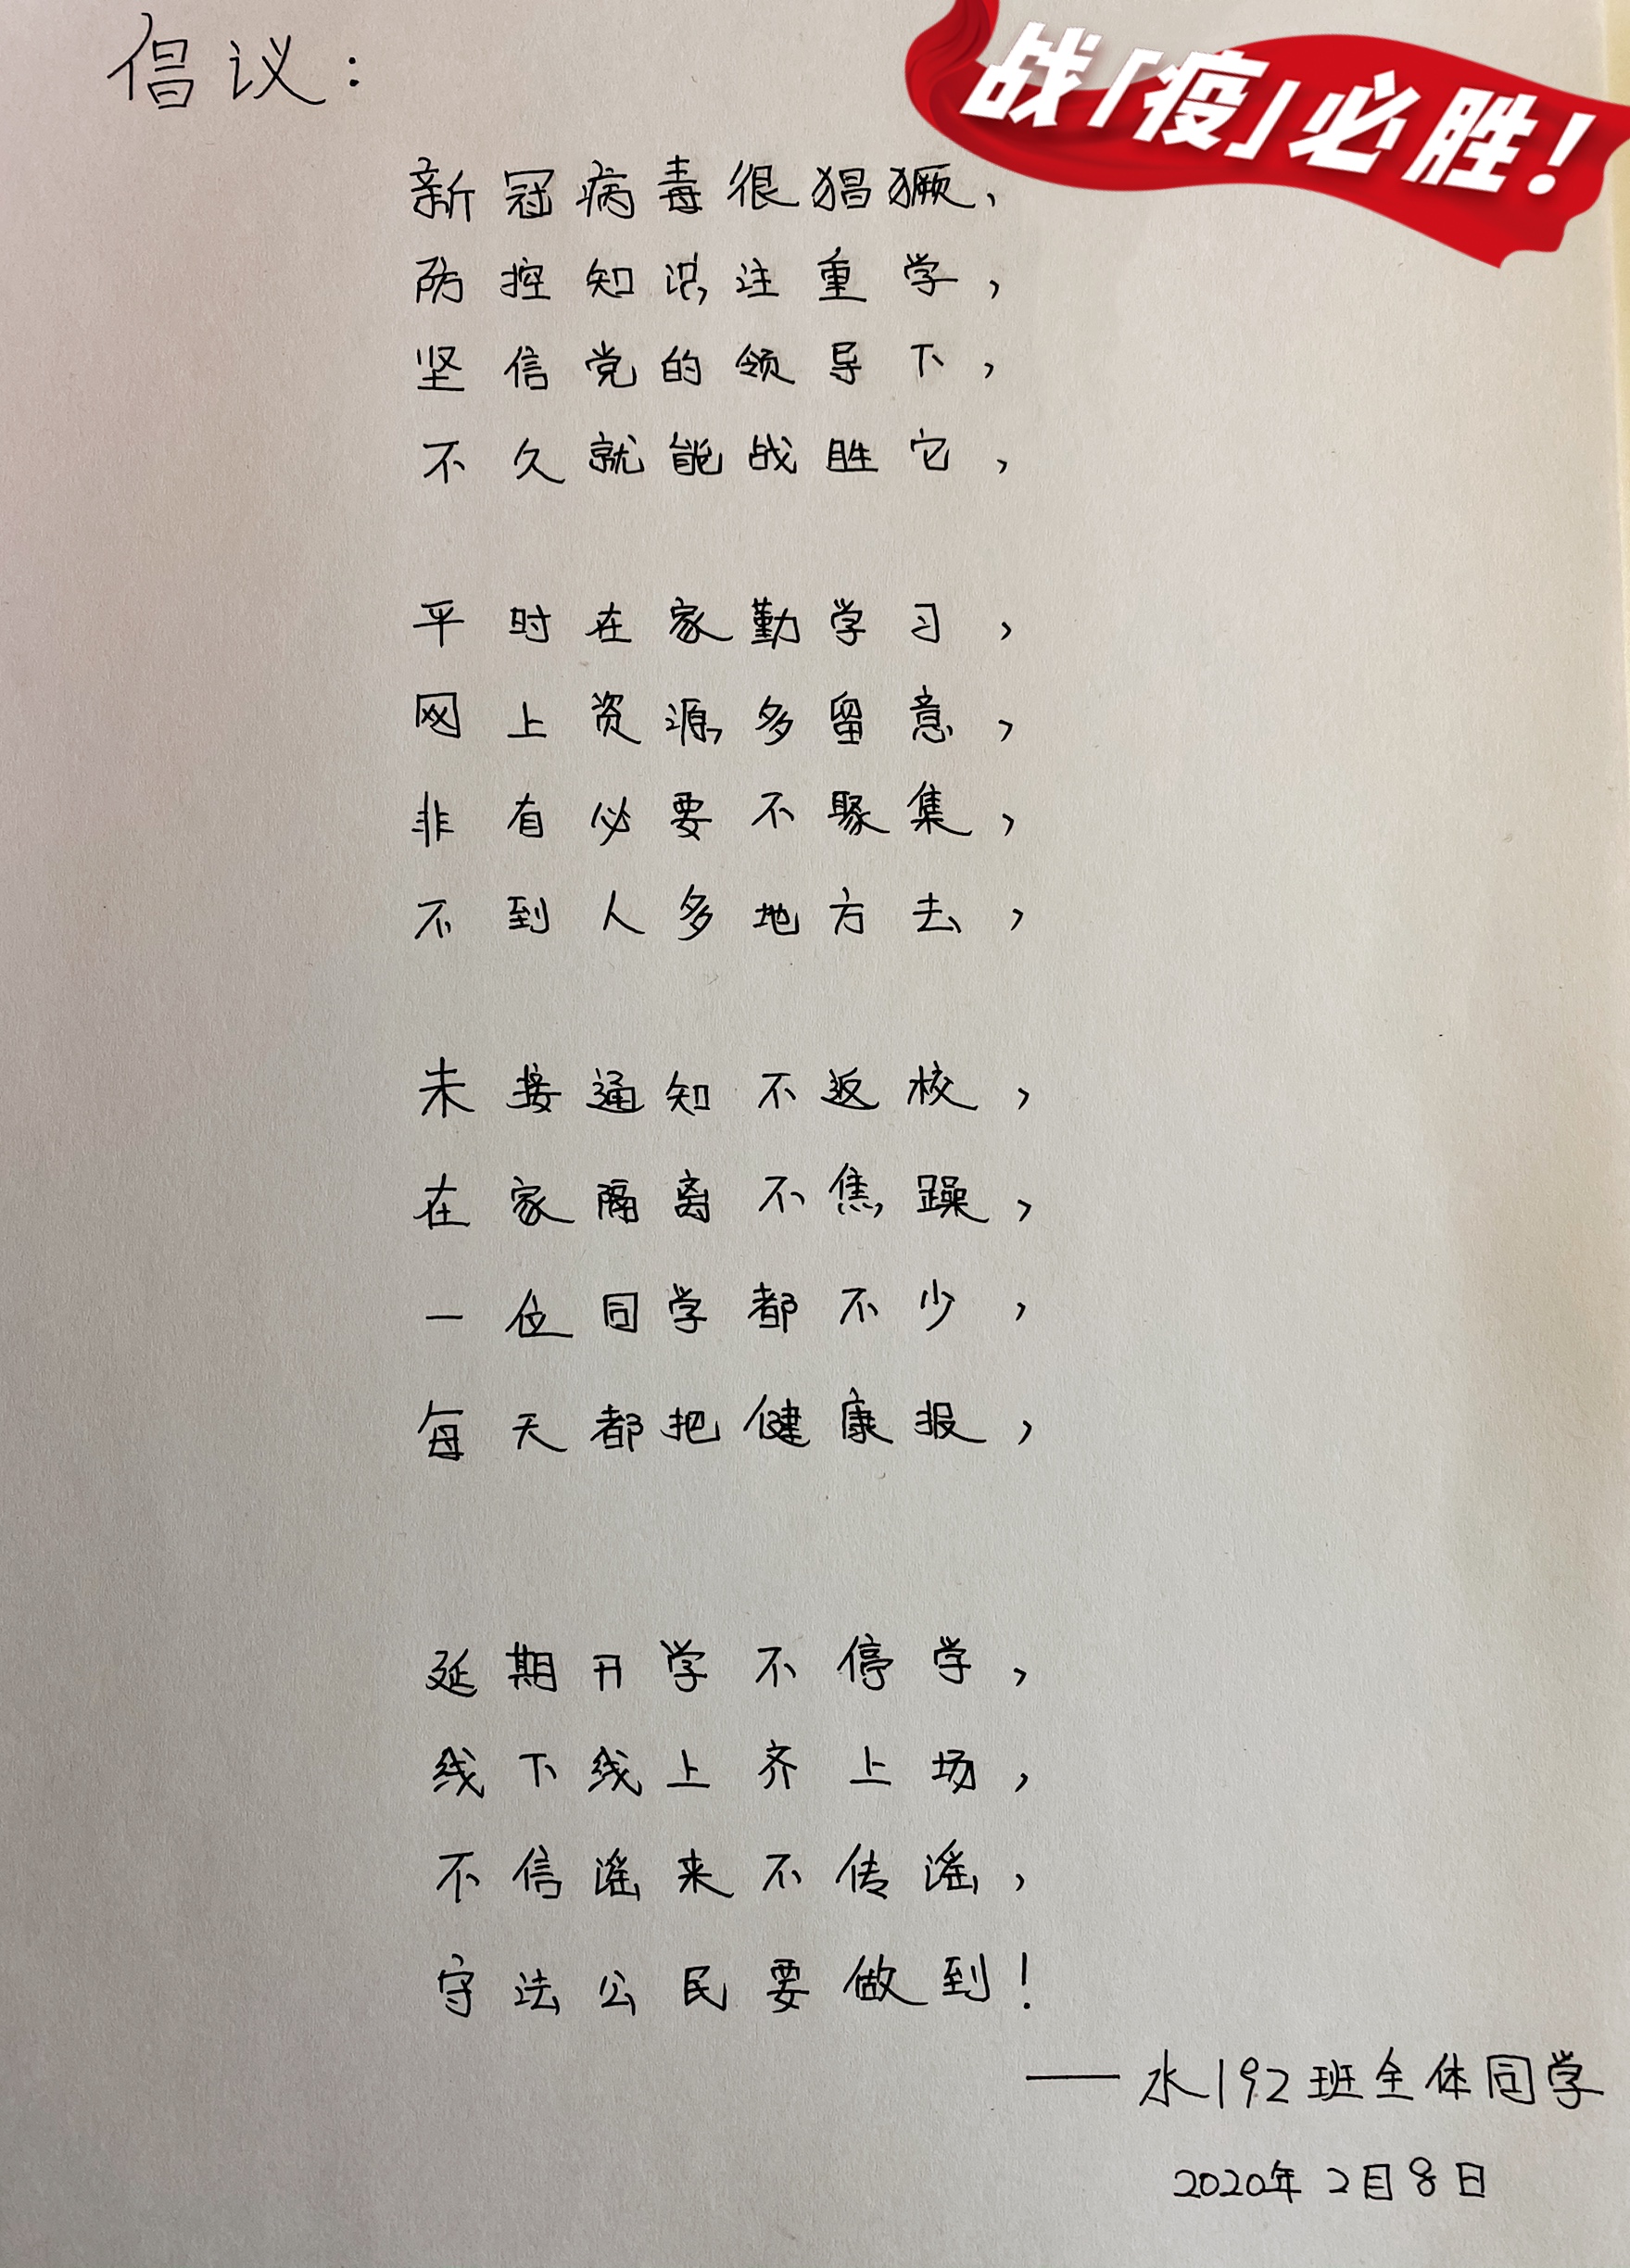 倡议：
战「疫」必胜！
新冠病毒很猖獗、
防控知识注重学，
坚信党的领导下，
不久就能战胜它，
平时在家勤学习，
网上资源多留意，
非有必要不聚集，
不到人多地方去，
未接通知不返校，
在家隔离不焦躁，
一位同学都不少，
每天都把健康报，
延期开学不停学，
线下线上齐上场，
不信谣来不传谣，
守法公民要做到！
——水192班全体同学
2020年2月8日